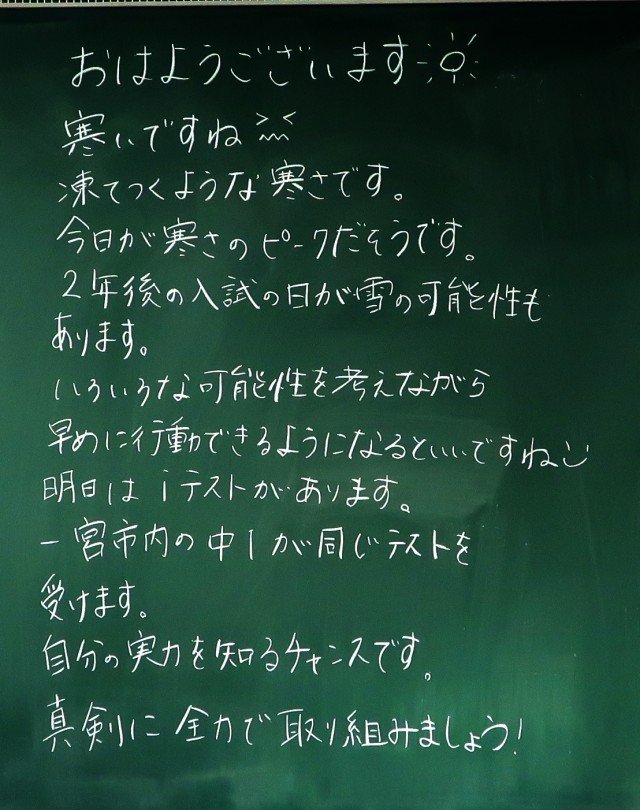 おはようございます
寒いですね
凍てつくような寒さです。
今日が寒さのピークだそうです。
2年後の入試の日が雪の可能性も
あります。
いろいろな可能性を考えながら
早めに行動できるようになるといいですね
明日はiテストがあります。
一宮市内の中1が同じテストを
受けます。
自分の実力を知るチャンスです。
真剣に全力で取り組みましょう!